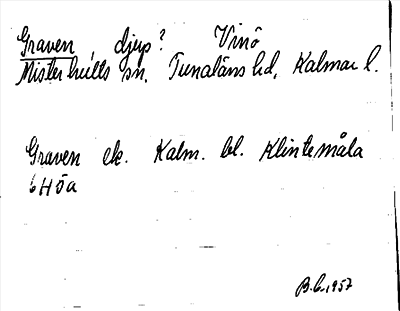 Graven, djup? Vinö
Misterhults sn. Tunaläns hd, Kalmar l.
Graven ek. Kalm. bl. Klintemåla
6Höa
1957